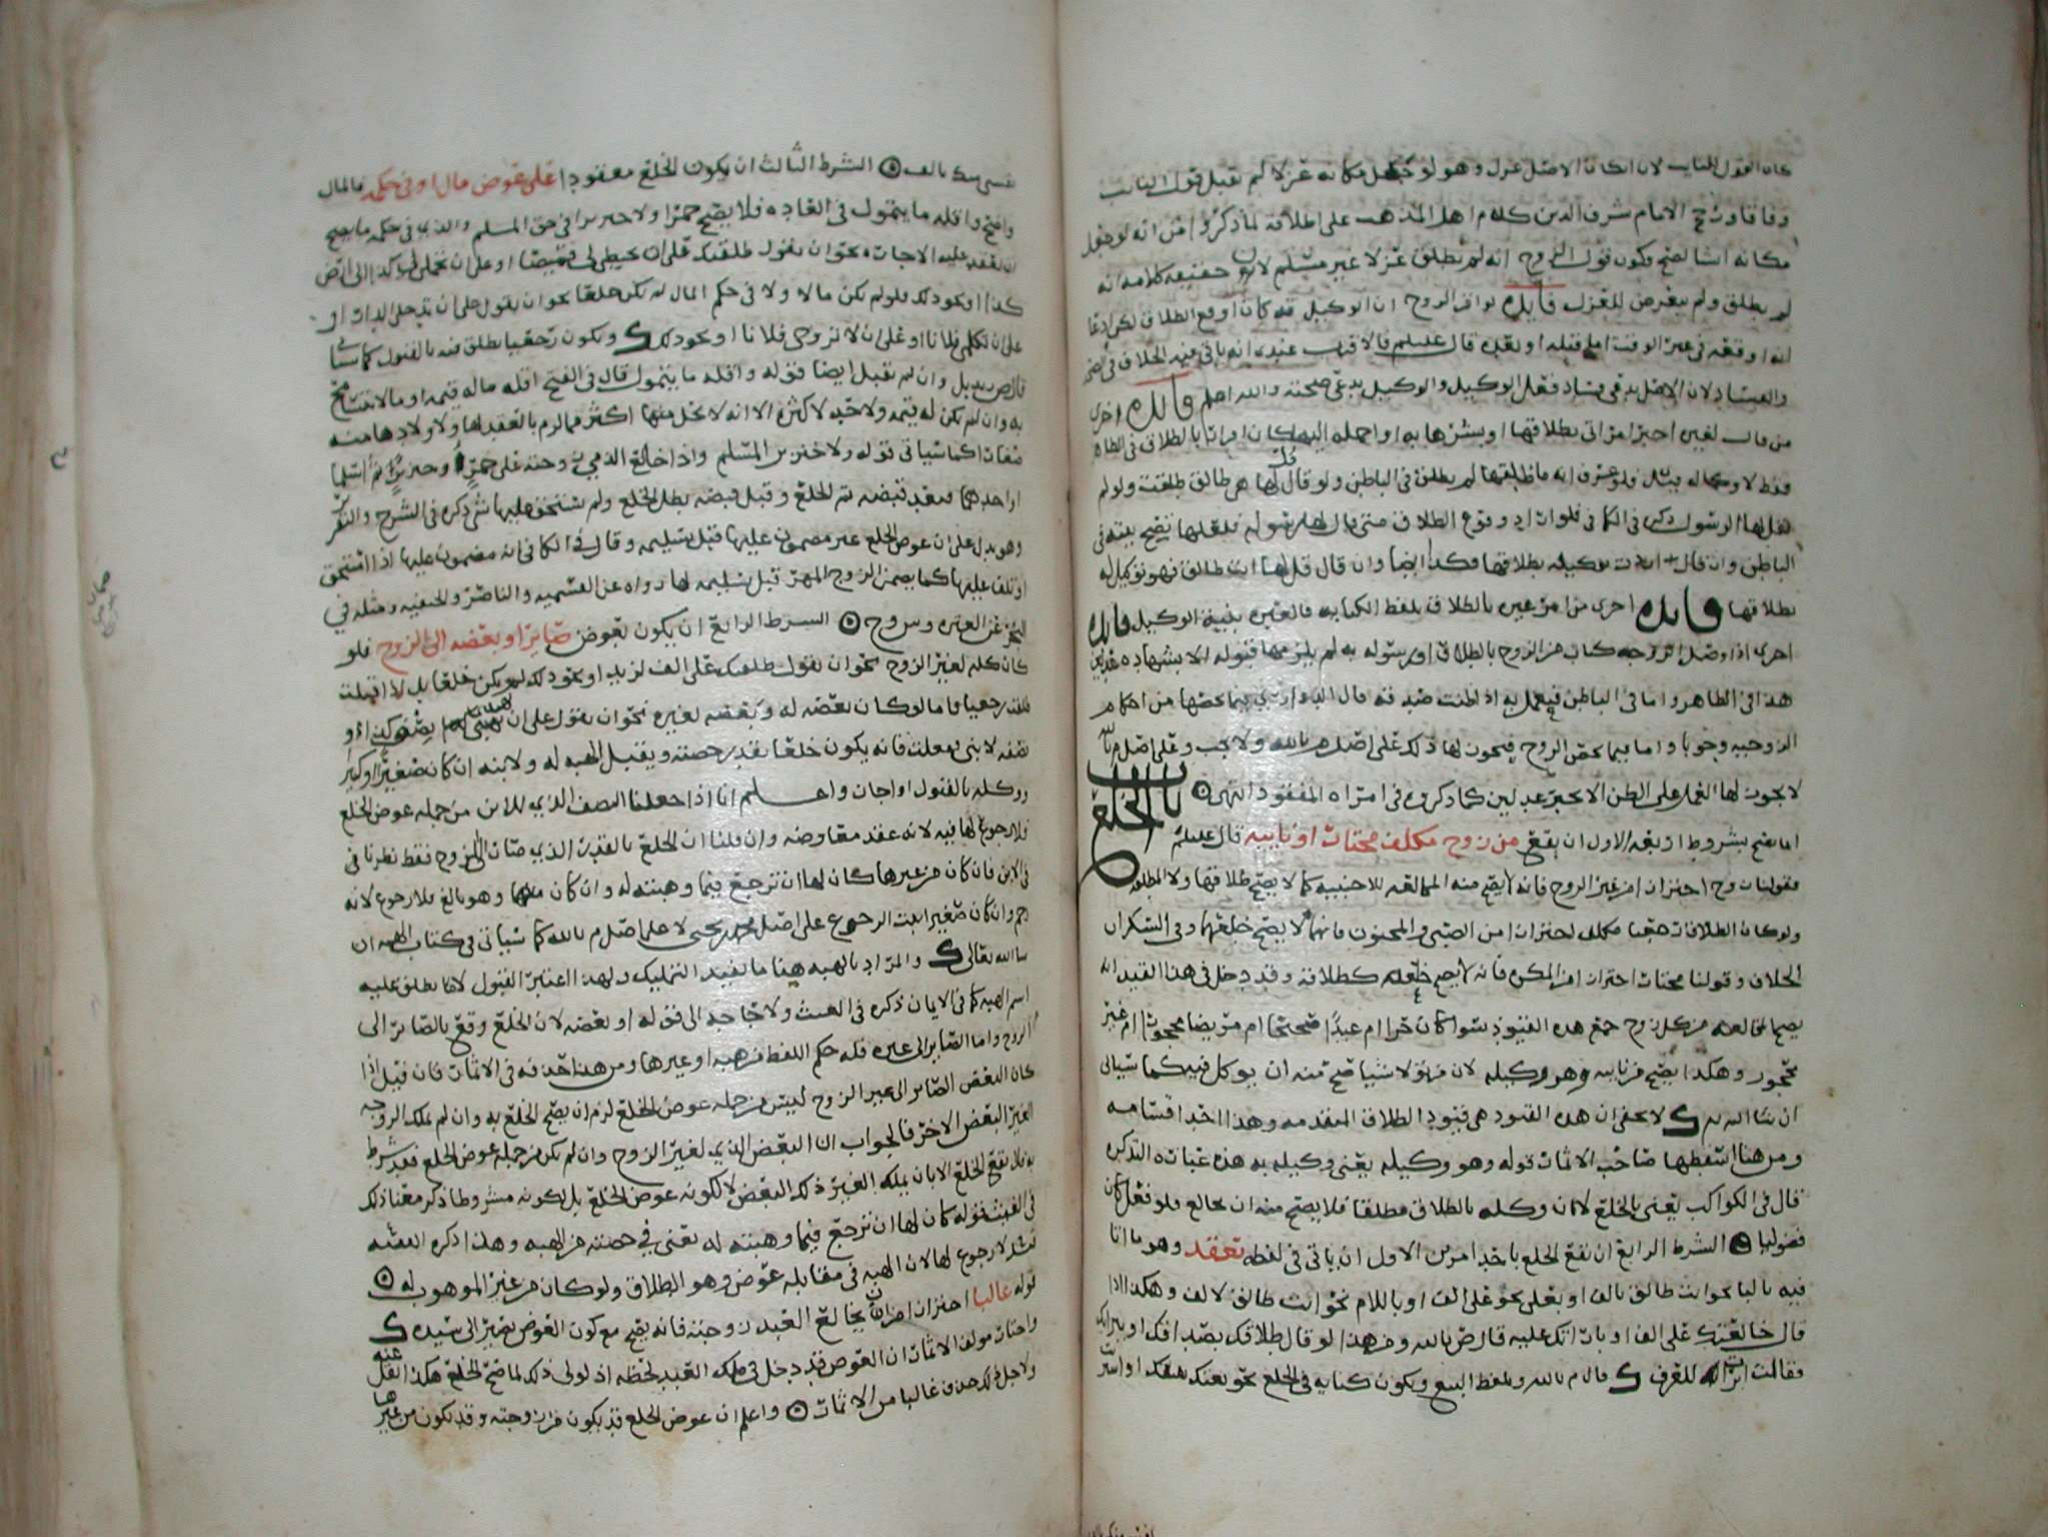 كان القول للنايب لان الاصل
وفاقا ورجح الامام شرف الدين كلام اهل المذهب على اطلاقه لما ذكروا من انه لو جعل
مكانه انشا لصح فكون قول الزوج انه لم يطلق عزلا غير مسلم لان حقيقة كلامه انه
لم يطلق ولم يتعرض للعزل فايده لو اقر الزوج ان الوكيل قد كان اوقع الطلاق لكن ادعا
انه اوقعه في غير الوقت اما قبله او بعده قال عليلم فالاقرب عندي انه ياتي فيه الخلاف في الصحة
والفساد لان الاصل يدعي فساد فعل الوكيل والوكيل يدعي صحته والله اعلم فايده اخرى
من قال لغيره اخبر امراتي بطلاقها او بشرها به او احمله اليها كان اقرارا بالطلاق في الظاهر
فقط لا وكاله فلو عرف انه ما طلقها لم يطلق في الباطن ولو قال قل لها هي طالق طلقت ولو لم
يقل لها الرسول ذكره في الكافي فلو اراد وقوع الطلاق متى قال لها رسوله فلعلها تصح نيته في
الباطن وان قال انت وكيله بطلاقها فكذا ايضا وان قال قل لها انت طالق فهو توكيل له
بطلاقها فايده اخرى من امر غيره بالطلاق بلفظ الكنايه فالعبره بنية الوكيل فايده
اخرى اذا وصل الزوجه كتاب من الزوج بالطلاق او رسوله به لم يلزمها قبوله الا بشهاده عدلين
هذا في الظاهر واما في الباطن فيعمل به اذا ظنت صدقه قال الدواري فيما يخصها من احكام
الزوجيه وجوبا واما فيما يخص الزوج فيجوز لها ذلك على اصل م بالله ولا يجب وعلى اصل
لا يجوز لها العمل على الظن الا بخبر عدلين كما ذكروه في امراة المفقود انتهى
باب الخلع
انما يصح بشروط اربعه الاول ان يقع من زوج مكلف مختار او نايبه قال عليلم
فقولنا زوج احتراز من غير الزوج فانه لا يصح منه المخالعه للاجنبيه كما لا يصح طلاقها ولا المطلقه
ولو كان الطلاق رجعيا مكلف احتراز من الصبي والمجنون فانهما لا يصح خلعهما وفي السكران
الخلاف وقولنا مختار احتراز من المكره فانه لا يصح خلعه كطلاقه وقد دخل في هذا القيد انه
يصح المخالعه من كل زوج جمع هذه القيود سوا كان حرا ام عبدا صحيحا ام مريضا محجورا ام غير
محجور وهكذا يصح من نايبه وهو وكيله لان من تولا شيا صح منه ان يوكل فيه كما سياتي
ان شا الله لا يخفى ان هذه القيود هي قيود الطلاق المتقدمه وهذا احد اقسامه
ومن هنا اسقطها صاحب الاثمار قوله وهو وكيله يعني وكيله به هذه عبارة التذكره
قال في الكواكب يعني بالخلع لا من وكله بالطلاق مطلقا فلا يصح منه ان يخالع فلو فعل كان
فضوليا الشرط الرابع ان يقع الخلع باحد امرين الاول ان ياتي في لفظه بعقد وهو ما اتا
فيه بالبا نحو انت طالق بالف او بعلى نحو على الف او باللام نحو انت طالق لالف وهكذا اذا
قال خالعتك على الف او بارأتك عليه قال ص بالله ومن هذا لو قال طلاقك بصداقك او ببرائك
فقالت ابرات للعرف قال م بالله وبلفظ البيع ويكون كنايه في الخلع نحو بعتك نفسك او اشتر
نفسي منك بالف الشرط الثالث ان يكون الخلع معقودا على عوض مال او في حكمه فالمال
واضح واقله ما يتمول في العاده فلا يصح خمرا ولا خنزيرا في حق المسلم والذي في حكمه ما يصح
ان يعقد عليه الاجاره نحو ان يقول طلقتك على ان تخيطي لي قميصا او على ان تحملي لي كذا الى ارض
كذا او نحو ذلك فلو لم يكن مالا ولا في حكم المال لم يكن خلعا نحو ان يقول على ان تدخلي الدار او
على ان تكلمي فلانا او على ان لا تزوجي فلانا او نحو ذلك ويكون رجعيا يطلق فيه بالقبول كما سياتي
قال ص بل وان لم تقبل ايضا قوله واقله ما يتمول قال في الفتح اقله ماله قيمه او ما لا يتسامح
به وان لم يكن له قيمه ولا حد لاكثره الا انه لا يحل منها اكثر مما لزم بالعقد لها ولاولادها منه
صغارا كما سياتي قوله ولا خنزيرا من المسلم واذا خالع الذمي زوجته على خمر او خنزير ثم اسلما
او احدهما فبعد قبضه تم الخلع وقبل قبضه بطل الخلع ولم يستحق عليها شي ذكره في الشرح والتقرير
وهو يدل على ان عوض الخلع غير مضمون عليها قبل تسليمه وقال في الكافي انه مضمون عليها اذا استحق
او تلف عليها كما يضمن الزوج المهر قبل تسليمه لها رواه عن القسميه والناصر والحنفيه ومثله في
البحر عن العتره وس وح الشرط الرابع ان يكون العوض صايرا او بعضه الى الزوج فلو
كان كله لغير الزوج نحو ان يقول طلقتك على الف لزيد او نحو ذلك لم يكن خلعا بل اذا قبلت
طلقت رجعيا فاما لو كان بعضه له وبعضه لغيره نحو ان يقول على ان تهبي لي نصف كذا او
نصفه لابني ففعلت فانه يكون خلعا بقدر حصته ويقبل الهبه له ولابنه ان كان صغيرا او كبيرا
ووكله بالقبول او اجاز واعلم انا اذا جعلنا النصف الذي للابن من جمله عوض الخلع
فلا رجوع لها فيه لانه عقد معاوضه وان قلنا ان الخلع بالقدر الذي صار الى الزوج فقط نظرنا في
في الابن فان كان من غيرها كان لها ان ترجع فيما وهبته له وان كان منها وهو بالغ فلا رجوع لانه
رحم وان كان صغيرا ثبت الرجوع على اصل محمد بن يحيى لا على اصل م بالله كما سياتي في كتاب الهبه ان
شا الله تعالى والمراد بالهبه هنا ما يفيد التمليك ولهذا اعتبر القبول لا ما يطلق عليه
اسم الهبه كما في الايمان ذكره في الغيث ولا حاجه الى قوله او بعضه لان الخلع وقع بالصاير الى
الزوج واما الصاير الى غيره فله حكم اللفظ من هبه او غيرها ومن هنا حذفه في الاثمار فان قيل اذا
كان البعض الصاير الى غير الزوج ليس من جمله عوض الخلع لزم ان يصح الخلع به وان لم يملك الزوجه
الغير البعض الاخر فالجواب ان البعض الذي لغير الزوج وان لم يكن من جمله عوض الخلع فقد شرط
به فلا يقع الخلع الا بان يملكه الغير ذلك البعض لا لكونه عوض الخلع بل لكونه مشروطا ذكر معنا ذلك
في الغيث قوله كان لها ان ترجع فيما وهبته له يعني في حصته من الهبه وهذا ذكره الفقيه
ف لا رجوع لها لان الهبه في مقابله عوض وهو الطلاق ولو كان من غير الموهوب له
قوله غالبا احتراز من ان يخالع العبد زوجته فانه يصح مع كون العوض يصير الى سيده
واختار مولف الاثمار ان العوض قد دخل في ملك العبد لحظه اذ لولى ذلك لما صح الخلع هكذا نقل عنه
ولاجل ذلك حذف غالبا من الاثمار واعلم ان عوض الخلع قد يكون من زوجته وقد يكون من غيرها